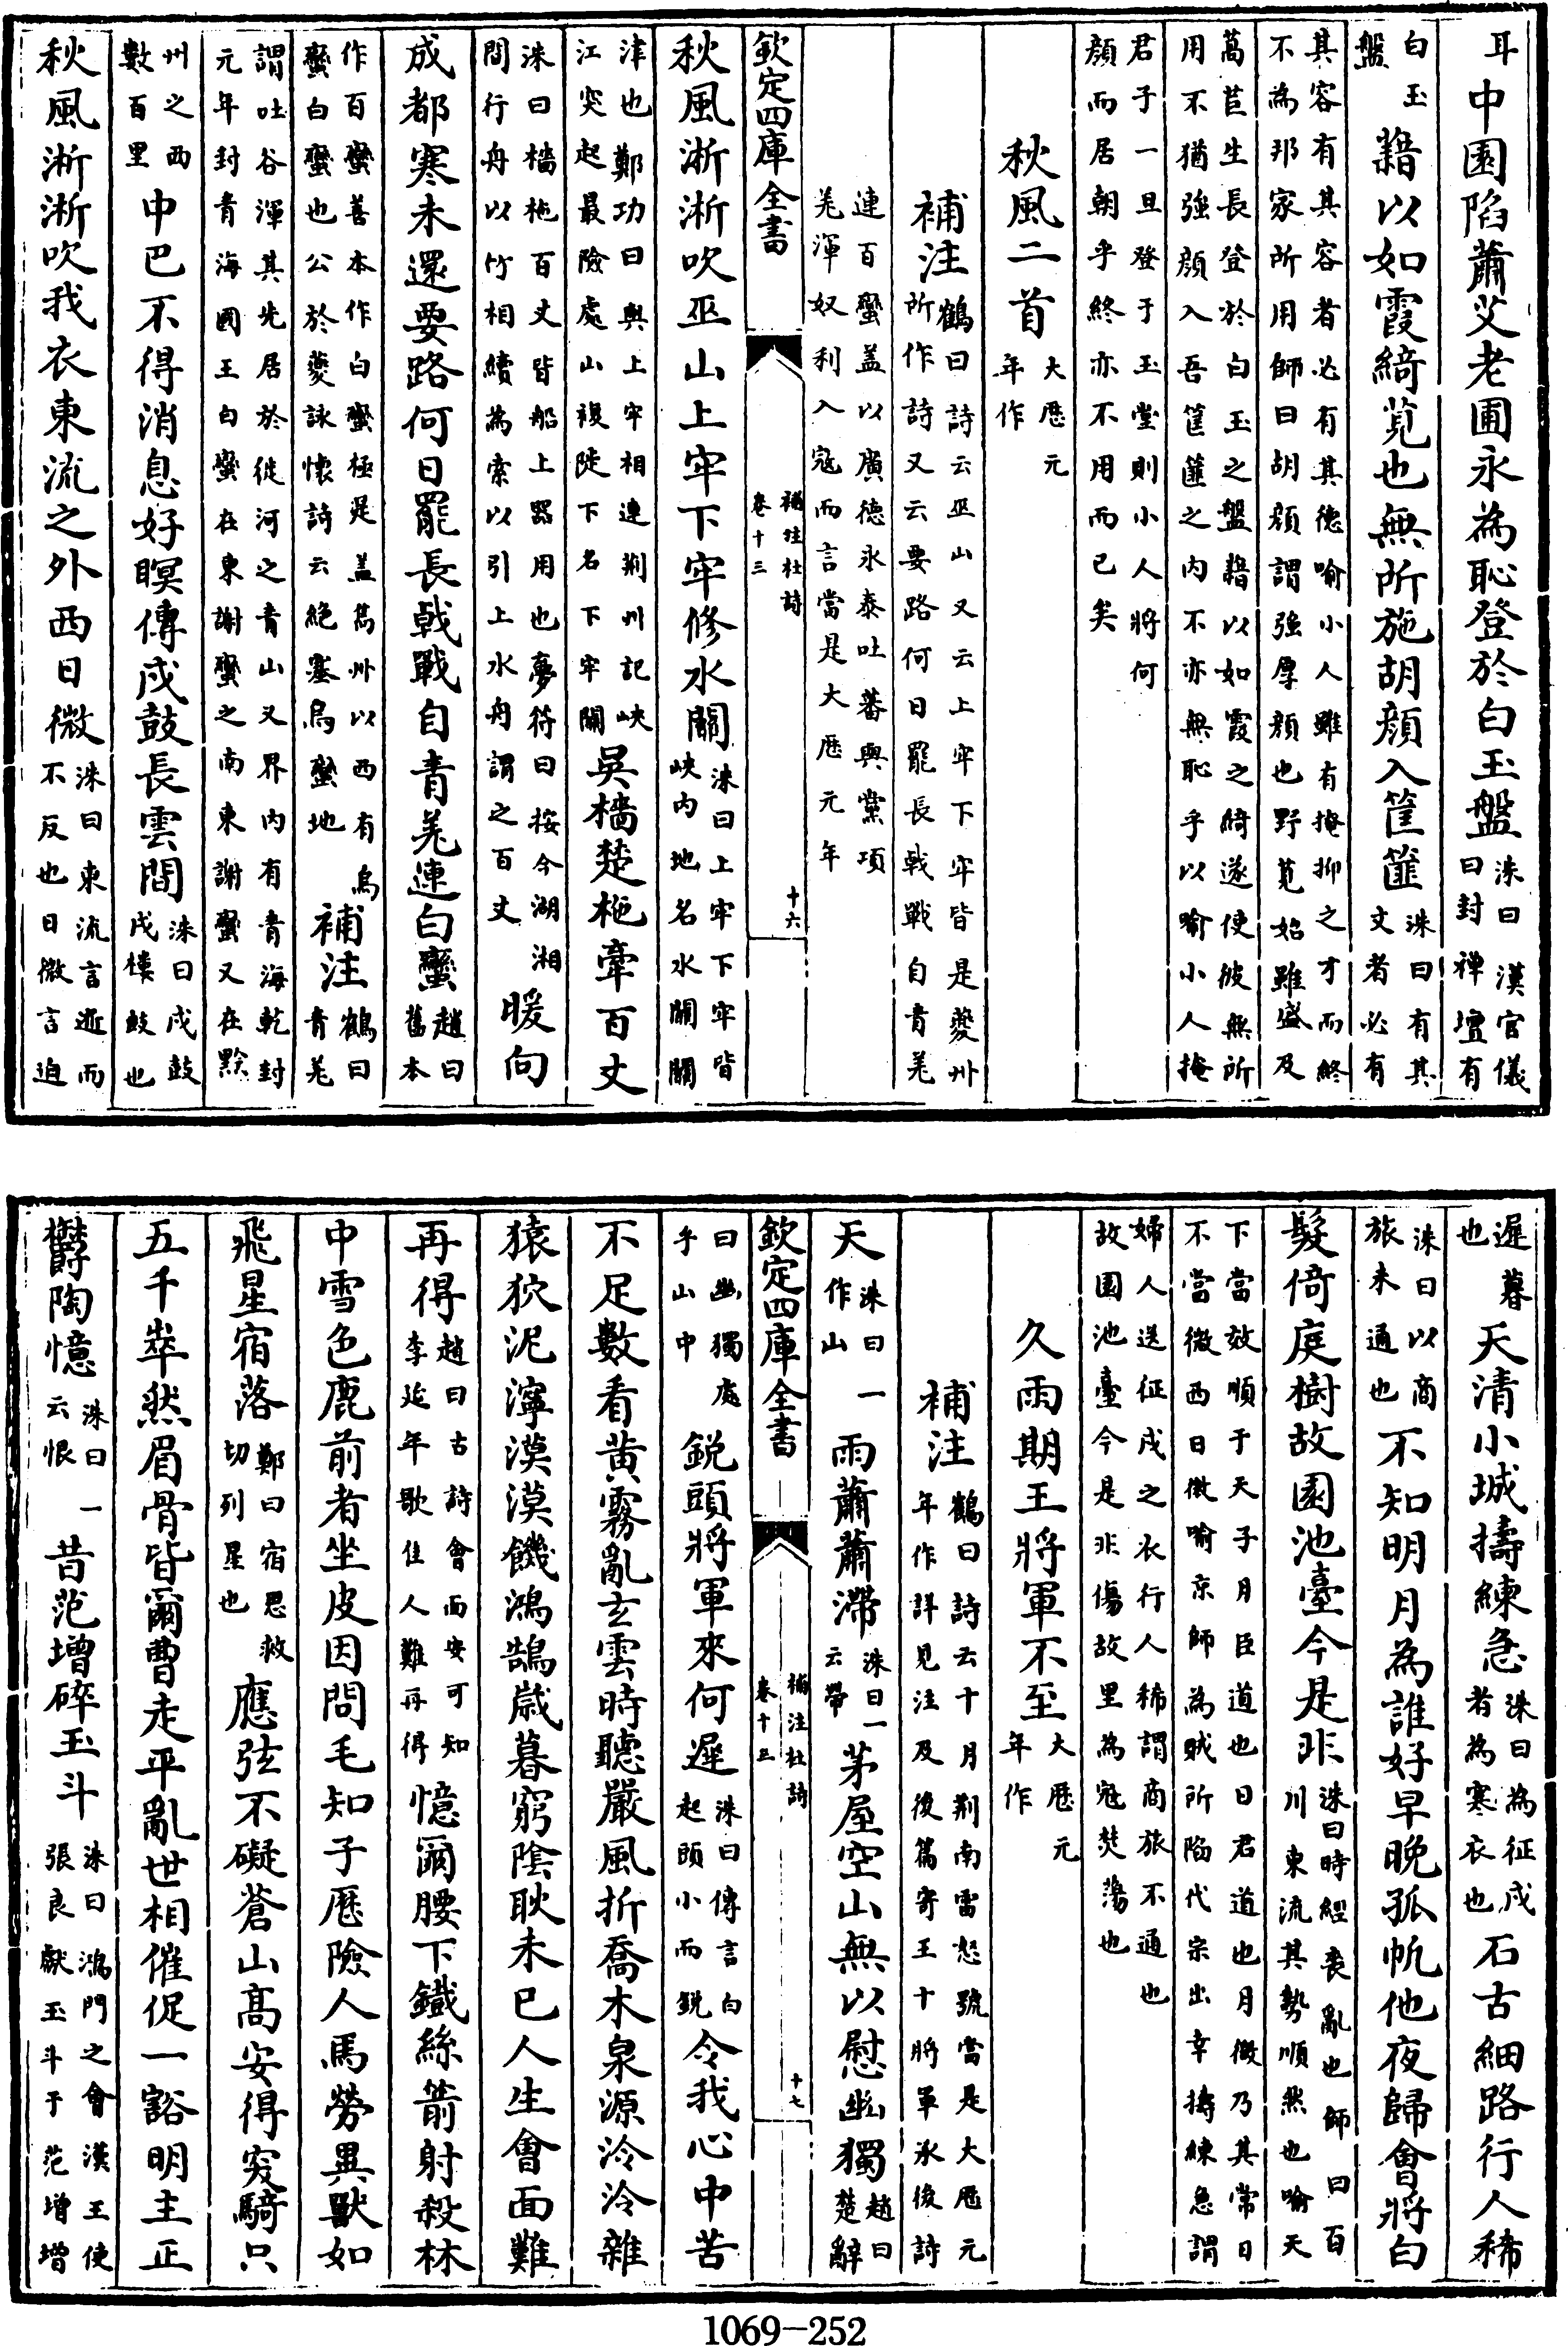 耳中園陷蕭艾老圃永為恥登於白玉盤洙曰漢官儀曰封禅壇有
白玉盤藉以如霞綺莧也無所施胡顔入筐篚洙曰有其文者必有
其容有其容者必有其徳喻小人雖有掩抑之才而終不為邦家所用師曰胡顔謂強厚顔也野莧始雖盛及
萵苣生長登於白玉之盤藉以如霞之綺遂使彼無所用不猶強顔入吾筐篚之内不亦無恥乎以喻小人掩
君子一旦登于玉堂則小人將何顔而居朝乎終亦不用而已矣
秋風二首大厯元年作
補注鶴曰詩云巫山又云上牢下牢皆是夔州所作詩又云要路何日罷長戟戰自青羌
連百蠻盖以廣德永泰吐蕃與黨項羌渾奴刺入寇而言當是大厯元年
欽定四庫全書 補注杜詩卷十三 十六
秋風淅淅吹巫山上牢下牢修水關洙曰上牢下牢皆峽内地名水關關
津也鄭功曰與上牢相連荆州記峽江突起最險處山複陡下名下牢關吳檣楚柂牽百丈
洙曰檣柂百丈皆船上器用也夢符曰按今湖湘間行舟以竹相續為索以引上水舟謂之百丈暖向
成都寒未還要路何日罷長戟戰自青羌連白蠻趙曰舊本
作百蠻善本作白蠻極是盖嶲州以西有烏蠻白蠻也公於夔詠懐詩云絶塞烏蠻地補注鶴曰青羌
謂吐谷渾其先居於徙河之青山又界内有青海乾封元年封青海國王白蠻在東謝蠻之南東謝蠻又在黔
州之西數百里中巴不得消息好瞑傳戍鼓長雲間洙曰戍鼓戍樓鼓也
秋風淅淅吹我衣東流之外西日微洙曰東流言逝而不反也日微言迫
遲暮也天清小城擣練急洙曰為征戍者為寒衣也石古細路行人稀
洙曰以商旅未通也不知明月為誰好早晚孤帆他夜歸會將白
髮倚庭樹故園池臺今是非洙曰時經喪亂也師曰百川東流其勢順然也喻天
下當效順于天子月臣道也日君道也月微乃其常日不當微西日微喻京師為賊所陷代宗出幸擣練急謂
婦人送征戍之衣行人稀謂商旅不通也故園池臺今是非傷故里為寇焚蕩也
久雨期王將軍不至大厯元年作
補注鶴曰詩云十月荆南雷怒號當是大厯元年作詳見注及後篇寄王十將軍承後詩
天洙曰一作山雨蕭蕭滯洙曰一云帶茅屋空山無以慰幽獨趙曰楚辭
欽定四庫全書 補注杜詩卷十三 十七
曰幽獨處乎山中鋭頭將軍來何遲洙曰傳言白起頭小而鋭令我心中苦
不足數看黄霧亂玄雲時聽嚴風折喬木泉源泠泠雜
猿狖泥濘漠漠饑鴻鵠歲暮窮陰耿未已人生會面難
再得趙曰古詩會面安可知李延年歌佳人難再得憶爾腰下鐵絲箭射殺林
中雪色鹿前者坐皮因問毛知子厯險人馬勞異獸如
飛星宿落鄭曰宿思救切列星也應弦不礙蒼山高安得突騎只
五千崒然眉骨皆爾曹走平亂世相催促一豁明主正
鬱陶憶洙曰一云恨昔范增碎玉斗洙曰鴻門之會漢王使張良獻玉斗于范增增
1069-252